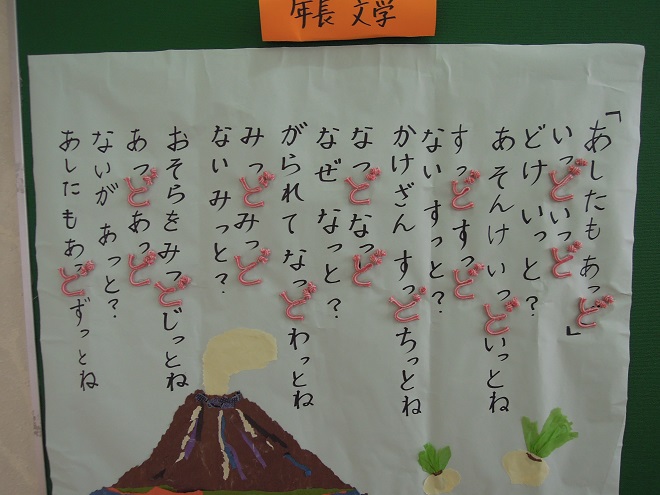 年長 文学
「あしたもあっど」
いっどいっど
どけ いっと?
あそんけ いっどいっとね
すっどすっど
ない すっと?
かけざん すっどちっとね
なっどなっど
なぜ なっと?
がられて なっどわっとね
みっどみっど
ないみっと?
おそらをみっどじっとね
あっどあっど
ないが あっと?
あしたもあっどずっとね